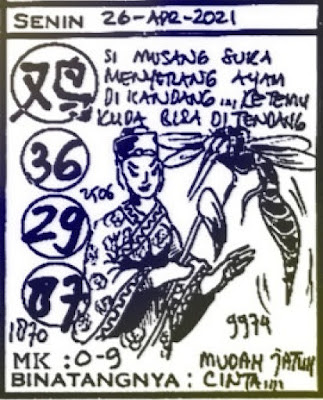 SENIN 26-APR-2021
SI MUSANG SUKA
MENYERANG AYAM
DI KANDANG .... KETEMU
KUDA BISA DI TENDANG
鸡
36
29
87
2506
1870
9974
MK : 0-9
MUDAH JATUH
BINATANGNYA : CINTA....